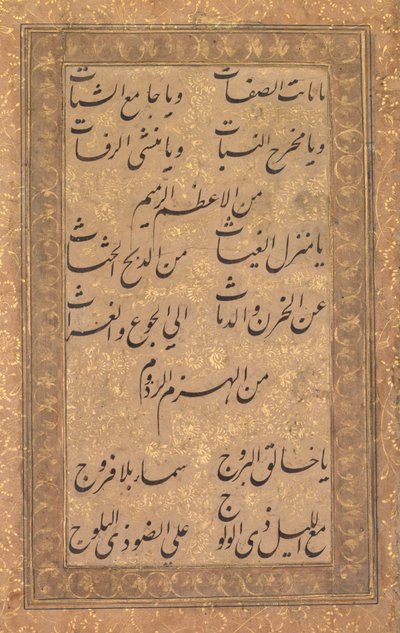 يا ثابت الصفات ويا جامع الشتات
ويا مخرج النبات ويا منشئ الرفات
من الاعظم الرميم
يا منزل الغياث من الدلح الحثاث
عن الحزن والدماث الي الجوع والغراث
من الهزم الرذوم
يا خالق البروج سماء بلا فروج
مع الليل ذي الولوج علي الضوء ذي البلوج